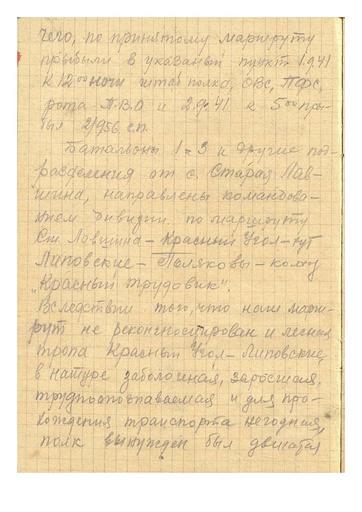 чего, по принятому маршруту
прибыли в указаный пункт 1.9.41
к 12⁰⁰ ночи штаб полка, ОВС, ПФС,
рота П.В.О и 2.9.41 к 5⁰⁰ при-
был 2/956 сп.
Батальоны 1 и 3 и другие под-
разделения от с. Старая Лав-
шина, направлены командова-
нием дивизии по маршруту
Ст. Лавшина - Красный Угол - хут
Липовские - Поляковы - колхоз
"Красный трудовик".
Вследствии того, что наш марш-
рут не реконгносцирован и лесная
тропа Красный Угол - Липовские,
в натуре заболоченая, заросшая,
трудноопознаваемая и для про-
хождения транспорта негодная,
полк вынужден был двигатся